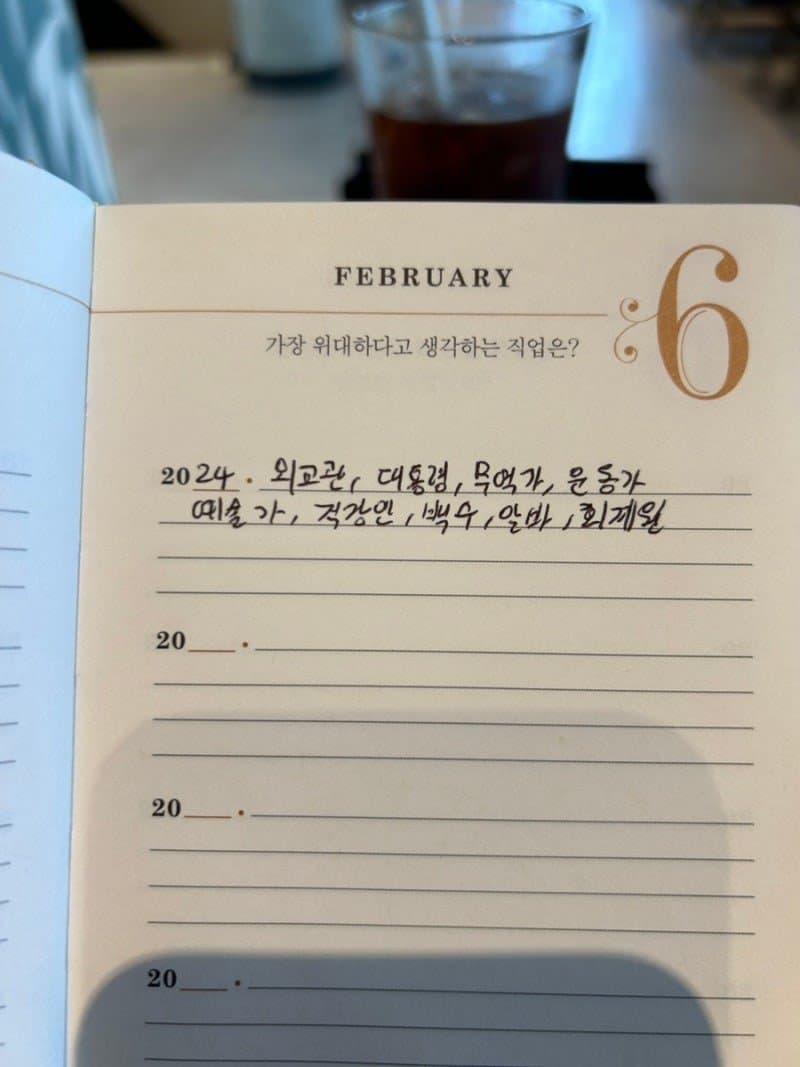 FEBRUARY
6
가장 위대하다고 생각하는 직업은?
2024 . 외교관, 대통령, 무역가, 운동가
예술가, 직장인, 백수, 알바, 회계원
20__ .
20__ .
20__ .